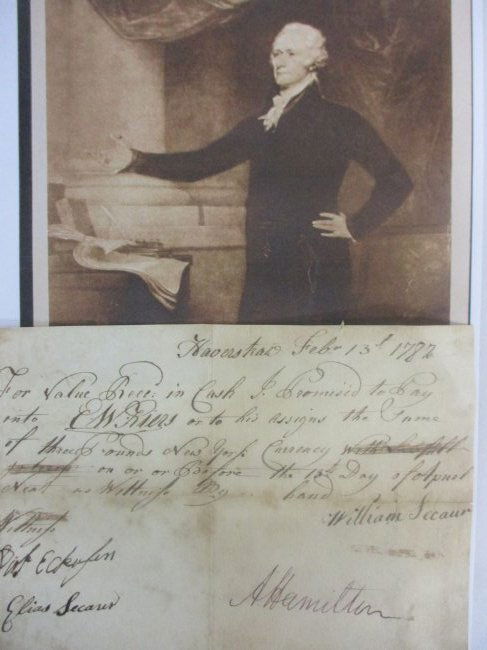 Haverstraw Febr 13th 1782
For Value Rece: in Cash I Promised to Pay
unto E W Kiers or to his assigns the Sume
of three Pounds New York Currency with
on or or Before the 13th Day of Aprel
Next as Wittness My hand
William Secaur
Wittness
Elias Secaur
AHamilton